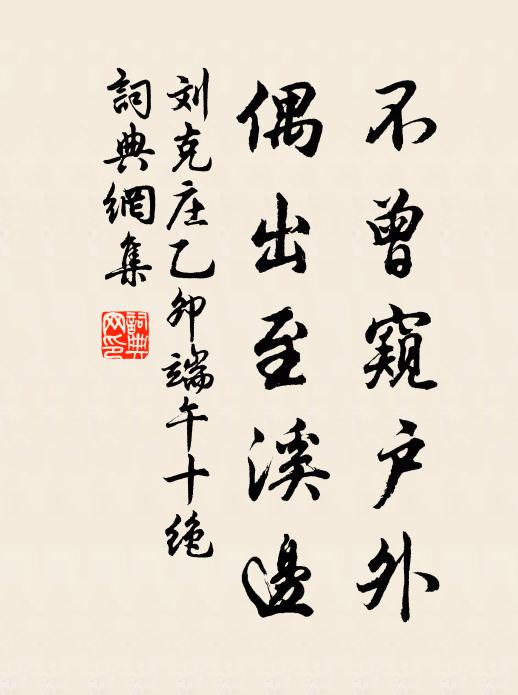 不曾窺户外
偶出至溪邊
刘克庄乙卯端午十绝
詞典網集
詞典網印